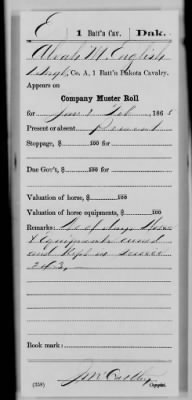 E | 1 Batt'n Cav. | Dak.
Alvah M. English
Co. A, 1 Batt'n Dakota Cavalry.
Appears on
Company Muster Roll
for Jan & Feb, 1865
Present or absent, present
Stoppage, $ 100
Due Gov't, $ 100
Valuation of horse, $ 100
Valuation of horse equipments, $ 100
Remarks: No of days Horse
& Equipments owned
and kept in service
Book mark:
(358)
Copyist.